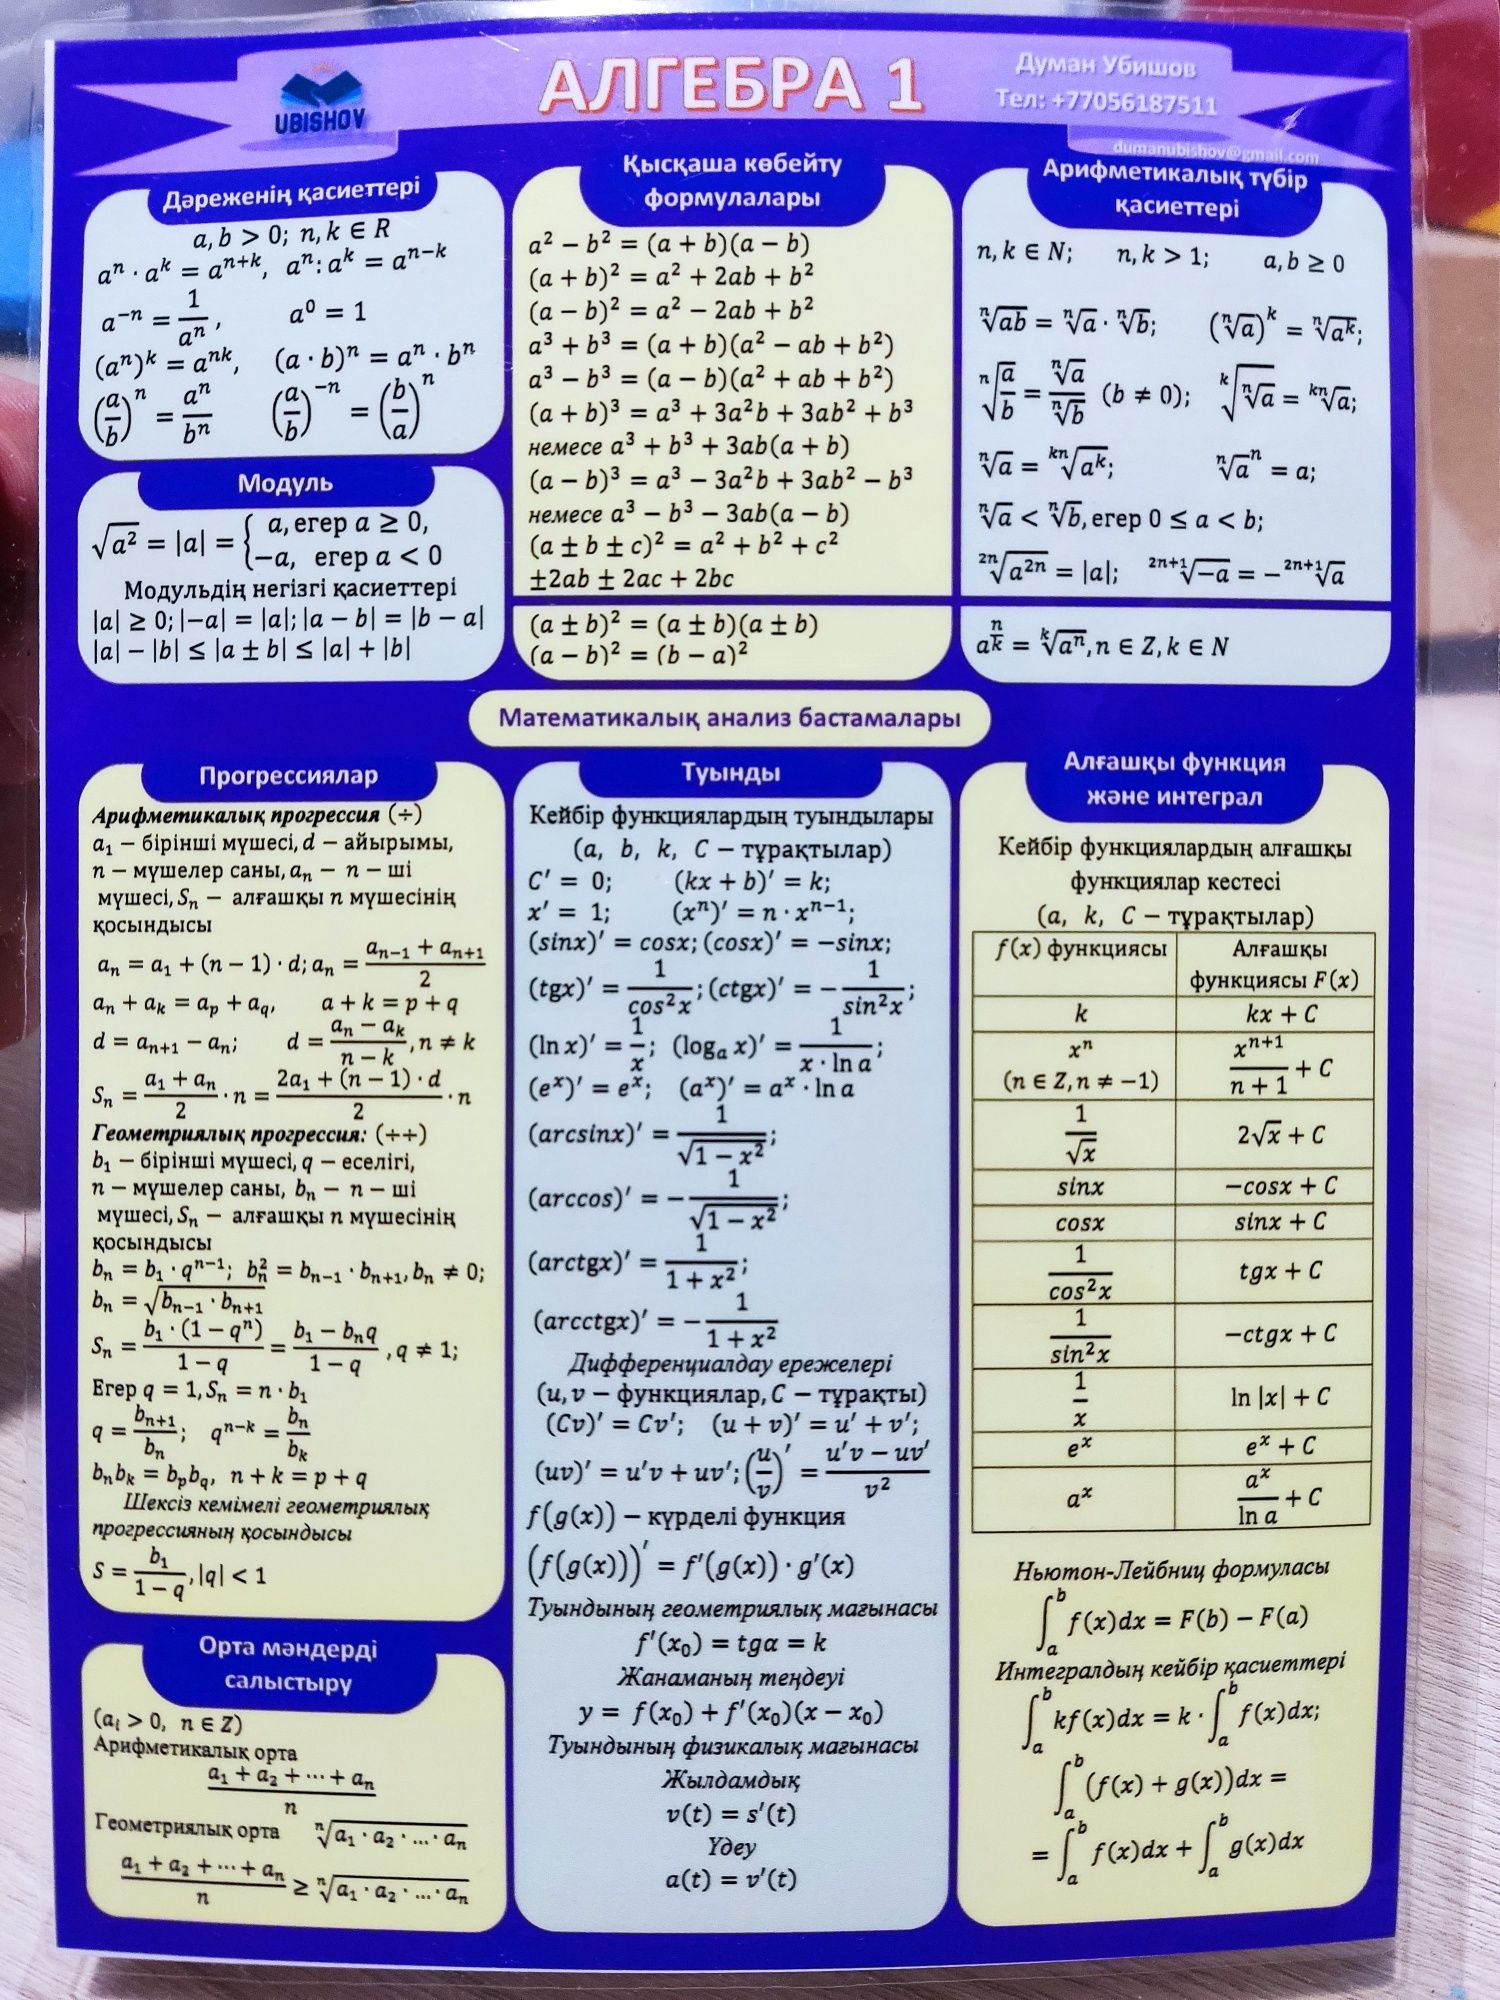 UBISHOV
АЛГЕБРА 1
Думан Убишов
Тел: +77056187511
dumanubishov@gmail.com
Дәреженің қасиеттері
a, b > 0; n, k ∈ R
aⁿ · aᵏ = aⁿ⁺ᵏ, aⁿ: aᵏ = aⁿ⁻ᵏ
a⁻ⁿ = 1/aⁿ, a⁰ = 1
(aⁿ)ᵏ = aⁿᵏ, (a · b)ⁿ = aⁿ · bⁿ
(a/b)ⁿ = aⁿ/bⁿ (a/b)⁻ⁿ = (b/a)ⁿ
Модуль
√(a²) = |a| = { a, егер a ≥ 0,
−a, егер a < 0
Модульдің негізгі қасиеттері
|a| ≥ 0; |−a| = |a|; |a − b| = |b − a|
|a| − |b| ≤ |a ± b| ≤ |a| + |b|
Қысқаша көбейту
формулалары
a² − b² = (a + b)(a − b)
(a + b)² = a² + 2ab + b²
(a − b)² = a² − 2ab + b²
a³ + b³ = (a + b)(a² − ab + b²)
a³ − b³ = (a − b)(a² + ab + b²)
(a + b)³ = a³ + 3a²b + 3ab² + b³
немесе a³ + b³ + 3ab(a + b)
(a − b)³ = a³ − 3a²b + 3ab² − b³
немесе a³ − b³ − 3ab(a − b)
(a ± b ± c)² = a² + b² + c²
±2ab ± 2ac + 2bc
(a ± b)² = (a ± b)(a ± b)
(a − b)² = (b − a)²
Арифметикалық түбір
қасиеттері
n, k ∈ N; n, k > 1; a, b ≥ 0
ⁿ√(ab) = ⁿ√a · ⁿ√b; (ⁿ√a)ᵏ = ⁿ√(aᵏ);
ⁿ√(a/b) = ⁿ√a/ⁿ√b (b ≠ 0); ᵏ√(ⁿ√a) = ᵏⁿ√a;
ⁿ√a = ᵏⁿ√(aᵏ); ⁿ√aⁿ = a;
ⁿ√a < ⁿ√b, егер 0 ≤ a < b;
²ⁿ√(a²ⁿ) = |a|; ²ⁿ⁺¹√(−a) = −²ⁿ⁺¹√a
a^(n/k) = ᵏ√(aⁿ), n ∈ Z, k ∈ N
Математикалық анализ бастамалары
Прогрессиялар
Арифметикалық прогрессия (÷)
a₁ − бірінші мүшесі, d − айырымы,
n − мүшелер саны, aₙ − n − ші
мүшесі, Sₙ − алғашқы n мүшесінің
қосындысы
aₙ = a₁ + (n − 1) · d; aₙ = (aₙ₋₁ + aₙ₊₁)/2
aₙ + aₖ = aₚ + a_q, a + k = p + q
d = aₙ₊₁ − aₙ; d = (aₙ − aₖ)/(n − k), n ≠ k
Sₙ = (a₁ + aₙ)/2 · n = (2a₁ + (n − 1) · d)/2 · n
Геометриялық прогрессия: (÷÷)
b₁ − бірінші мүшесі, q − еселігі,
n − мүшелер саны, bₙ − n − ші
мүшесі, Sₙ − алғашқы n мүшесінің
қосындысы
bₙ = b₁ · qⁿ⁻¹; bₙ² = bₙ₋₁ · bₙ₊₁, bₙ ≠ 0;
bₙ = √(bₙ₋₁ · bₙ₊₁)
Sₙ = b₁ · (1 − qⁿ)/(1 − q) = (b₁ − bₙq)/(1 − q), q ≠ 1;
Егер q = 1, Sₙ = n · b₁
q = bₙ₊₁/bₙ; qⁿ⁻ᵏ = bₙ/bₖ
bₙbₖ = bₚb_q, n + k = p + q
Шексіз кемімелі геометриялық
прогрессияның қосындысы
S = b₁/(1 − q), |q| < 1
Орта мәндерді
салыстыру
(aᵢ > 0, n ∈ Z)
Арифметикалық орта
(a₁ + a₂ + ⋯ + aₙ)/n
Геометриялық орта ⁿ√(a₁ · a₂ · … · aₙ)
(a₁ + a₂ + ⋯ + aₙ)/n ≥ ⁿ√(a₁ · a₂ · … · aₙ)
Туынды
Кейбір функциялардың туындылары
(a, b, k, C − тұрақтылар)
C′ = 0; (kx + b)′ = k;
x′ = 1; (xⁿ)′ = n · xⁿ⁻¹;
(sinx)′ = cosx; (cosx)′ = −sinx;
(tgx)′ = 1/cos²x; (ctgx)′ = −1/sin²x;
(ln x)′ = 1/x; (logₐ x)′ = 1/(x · ln a);
(eˣ)′ = eˣ; (aˣ)′ = aˣ · ln a
(arcsinx)′ = 1/√(1 − x²);
(arccos)′ = −1/√(1 − x²);
(arctgx)′ = 1/(1 + x²);
(arcctgx)′ = −1/(1 + x²)
Дифференциалдау ережелері
(u, v − функциялар, C − тұрақты)
(Cv)′ = Cv′; (u + v)′ = u′ + v′;
(uv)′ = u′v + uv′; (u/v)′ = (u′v − uv′)/v²
f(g(x)) − күрделі функция
(f(g(x)))′ = f′(g(x)) · g′(x)
Туындының геометриялық мағынасы
f′(x₀) = tgα = k
Жанаманың теңдеуі
y = f(x₀) + f′(x₀)(x − x₀)
Туындының физикалық мағынасы
Жылдамдық
v(t) = s′(t)
Үдеу
a(t) = v′(t)
Алғашқы функция
және интеграл
Кейбір функциялардың алғашқы
функциялар кестесі
(a, k, C − тұрақтылар)
f(x) функциясы Алғашқы
функциясы F(x)
k kx + C
xⁿ (n ∈ Z, n ≠ −1) xⁿ⁺¹/(n + 1) + C
1/√x 2√x + C
sinx −cosx + C
cosx sinx + C
1/cos²x tgx + C
1/sin²x −ctgx + C
1/x ln |x| + C
eˣ eˣ + C
aˣ aˣ/ln a + C
Ньютон-Лейбниц формуласы
∫ₐᵇ f(x)dx = F(b) − F(a)
Интегралдың кейбір қасиеттері
∫ₐᵇ kf(x)dx = k · ∫ₐᵇ f(x)dx;
∫ₐᵇ (f(x) + g(x))dx =
= ∫ₐᵇ f(x)dx + ∫ₐᵇ g(x)dx